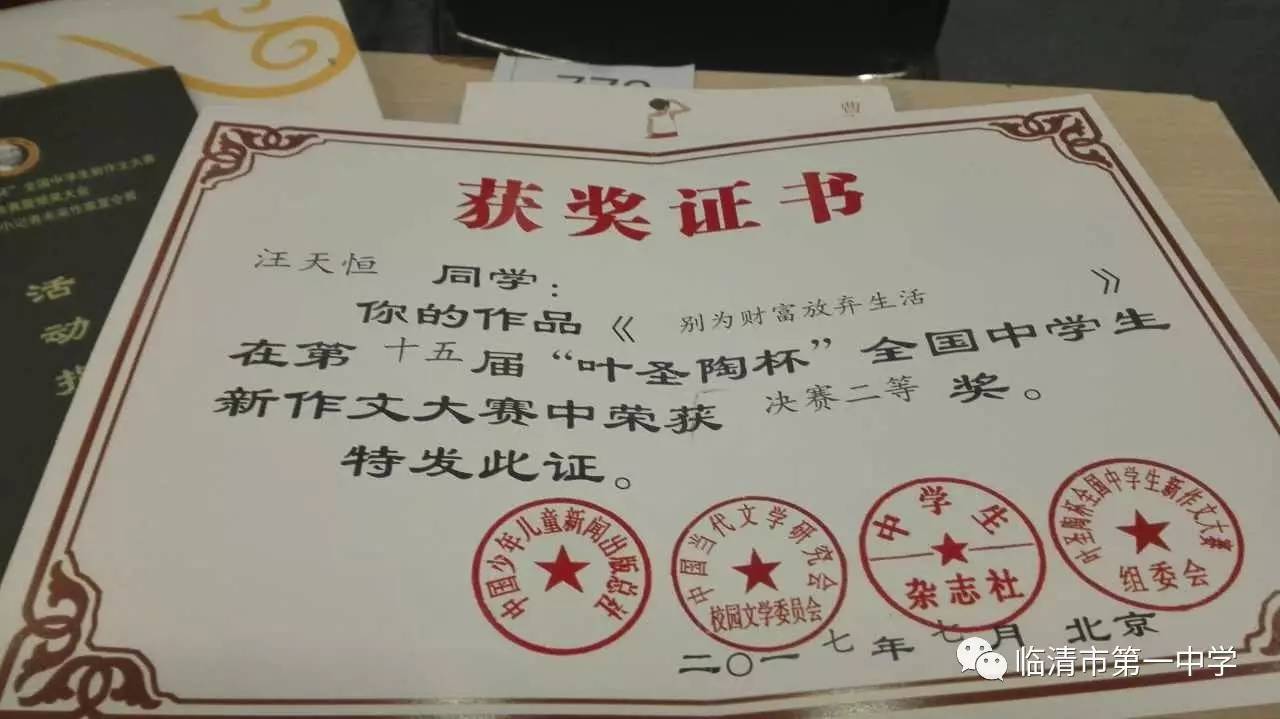 获奖证书
汪天恒 同学：
你的作品《 别为财富放弃生活 》
在第十五届“叶圣陶杯”全国中学生
新作文大赛中荣获 决赛二等 奖。
特发此证。
中国少年儿童新闻出版总社
中国当代文学研究会
校园文学委员会
中学生
杂志社
叶圣陶杯全国中学生新作文大赛
组委会
二〇一七年七月 北京
临清市第一中学
全国中学生新作文大赛
颁奖大会
活动